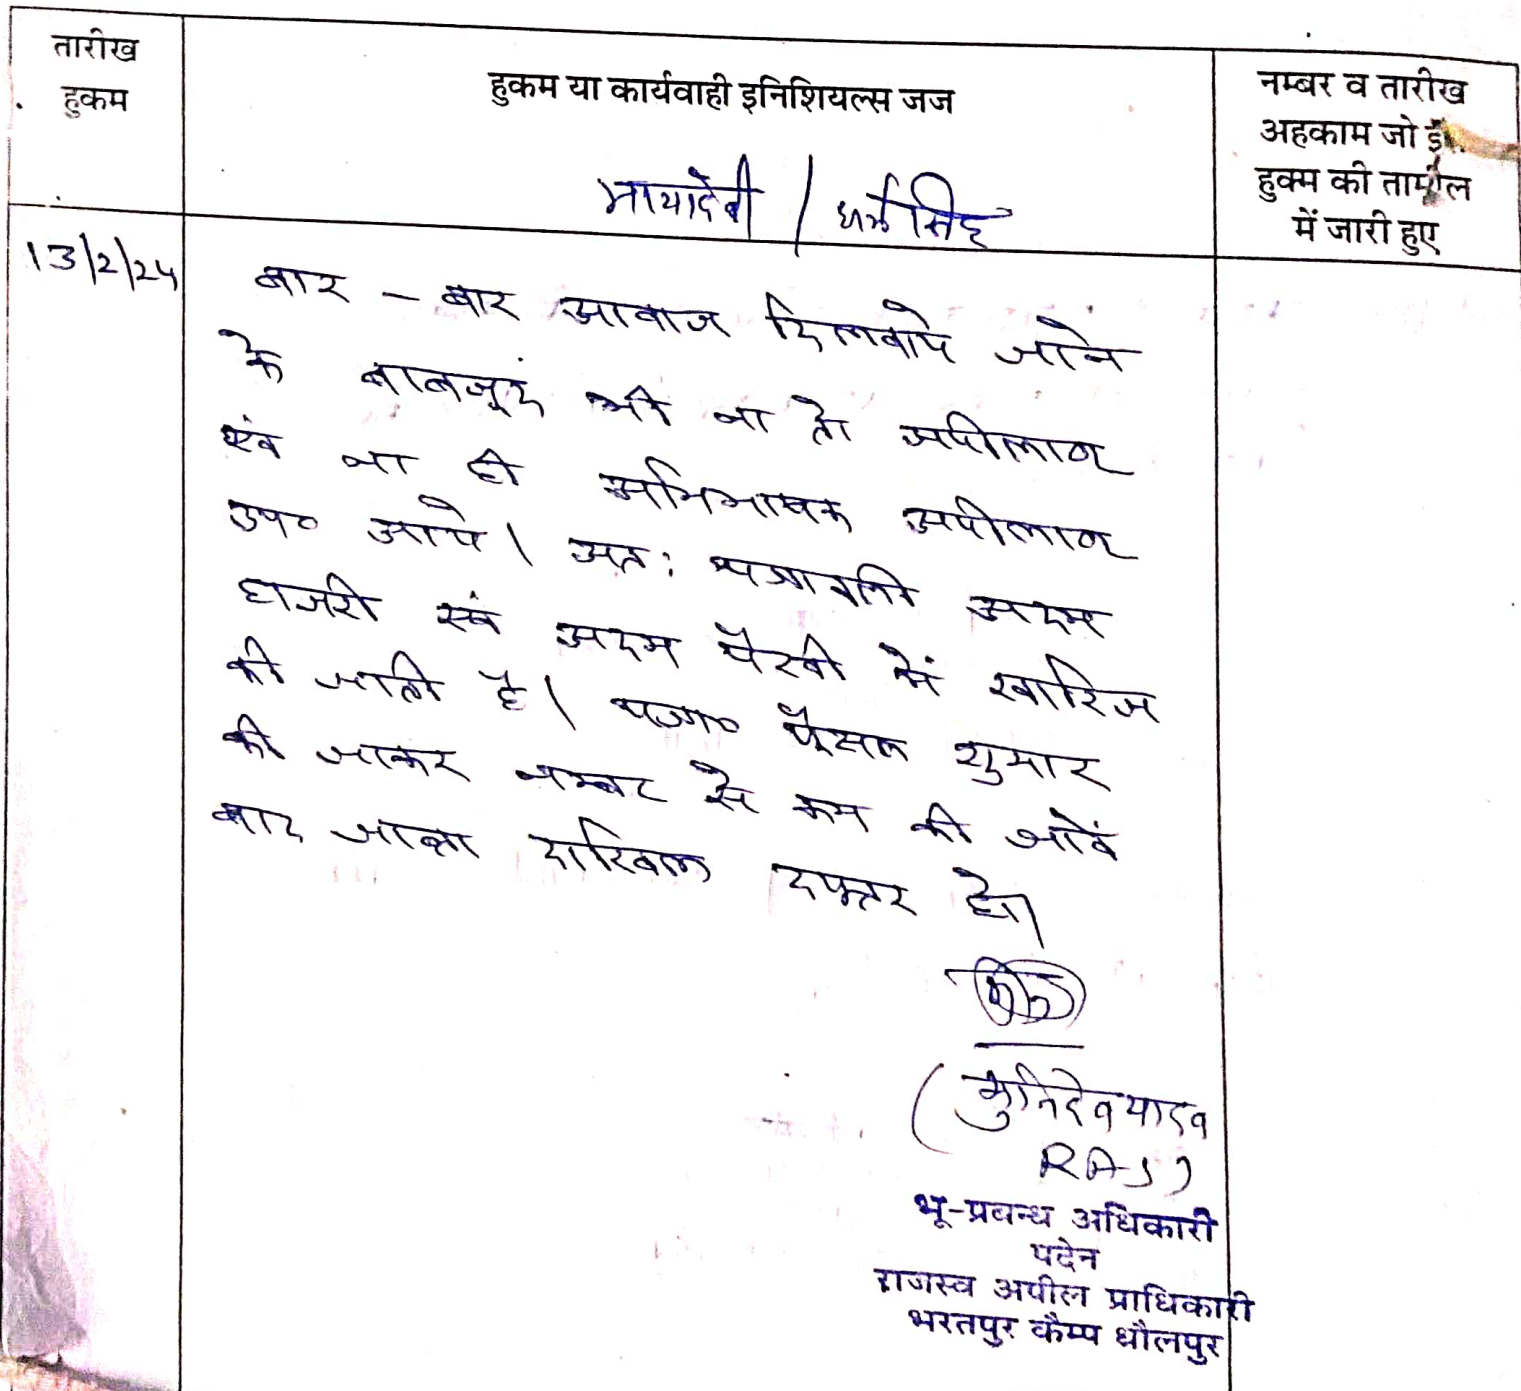 तारीख
हुकम
हुकम या कार्यवाही इनिशियल्स जज
नम्बर व तारीख
अहकाम जो इस
हुक्म की तामील
में जारी हुए
मायादेवी / धर्मसिंह
13/2/24
बार - बार आवाज दिलवाये जाने
के बावजूद भी ना तो अपीलान्ट
एवं ना ही अभिभाषक अपीलान्ट
उप० आये। अतः पत्रावली अदम
हाजरी एवं अदम पैरवी में खारिज
की जाती है। पत्रा० फैसल शुमार
की जाकर नम्बर से कम की जावें
बाद जाब्ता दाखिल दफ्तर हो।
(मुनिदेव यादव
RAS)
भू-प्रबन्ध अधिकारी
पदेन
राजस्व अपील प्राधिकारी
भरतपुर कैम्प धौलपुर